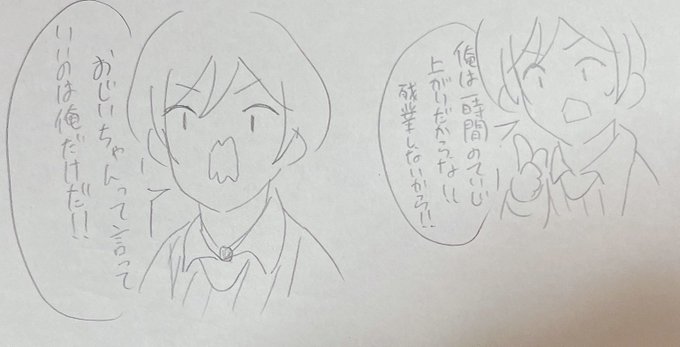 俺は一時間のていじ
上がりだからな!!
残業しないから!!
おじいちゃんって言って
いいのは俺だけだ!!